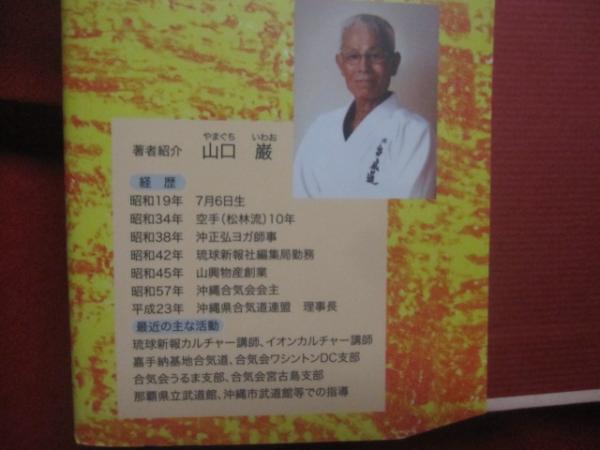 やまぐち いわお
著者紹介 山口 巌
経歴
昭和19年 7月6日生
昭和34年 空手(松林流)10年
昭和38年 沖正弘ヨガ師事
昭和42年 琉球新報社編集局勤務
昭和45年 山興物産創業
昭和57年 沖縄合気会会主
平成23年 沖縄県合気道連盟 理事長
最近の主な活動
琉球新報カルチャー講師、イオンカルチャー講師
嘉手納基地合気道、合気会ワシントンDC支部
合気会うるま支部、合気会宮古島支部
那覇県立武道館、沖縄市武道館等での指導